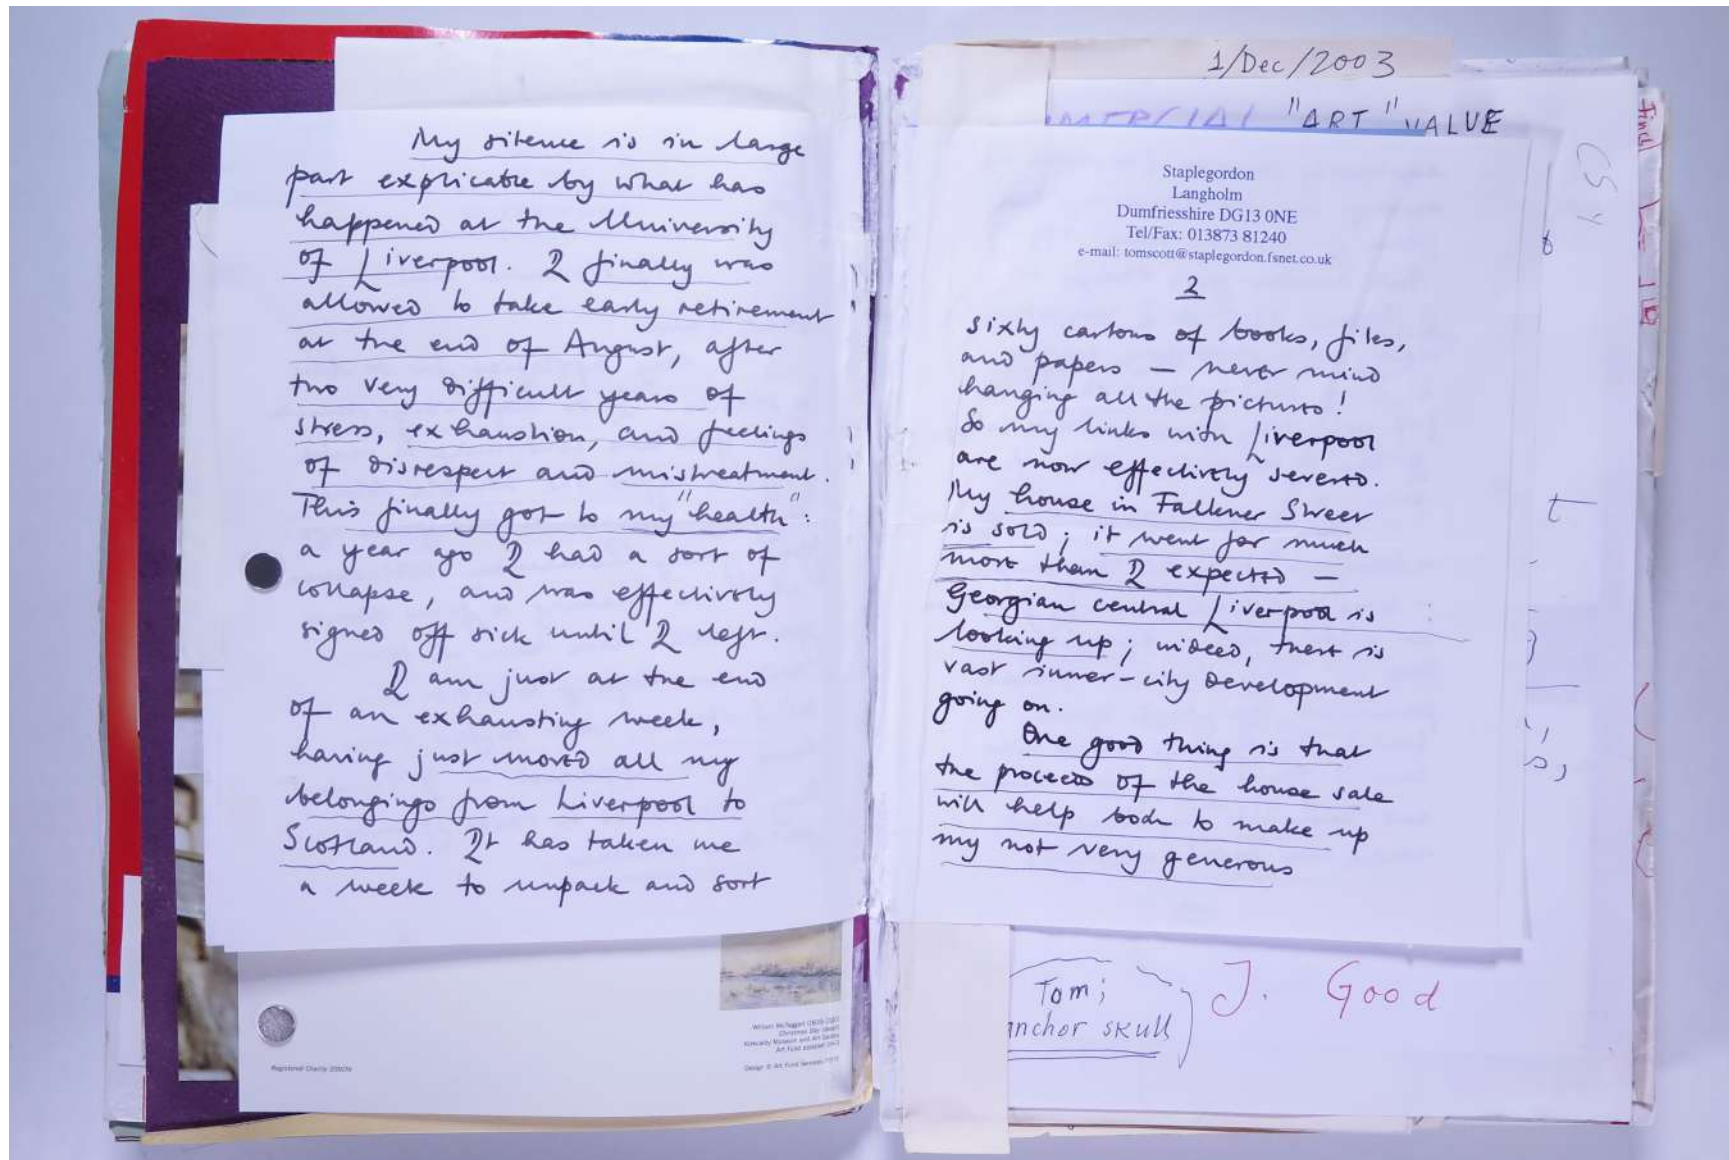 My silence is in large
part explicable by what has
happened at the University
of Liverpool. I finally was
allowed to take early retirement
at the end of August, after
two very difficult years of
stress, exhaustion, and feelings
of disrespect and mistreatment.
This finally got to my "health":
a year ago I had a sort of
collapse, and was effectively
signed off sick until I left.
I am just at the end
of an exhausting week,
having just moved all my
belongings from Liverpool to
Scotland. It has taken me
a week to unpack and sort
Registered Charity
1/Dec/2003
"ART" VALUE
Staplegordon
Langholm
Dumfriesshire DG13 0NE
Tel/Fax: 013873 81240
e-mail: tomscott@staplegordon.fsnet.co.uk
2
sixty cartons of books, files,
and papers — never mind
hanging all the pictures!
So my links with Liverpool
are now effectively severed.
My house in Falkner Street
is sold; it went for much
more than I expected —
Georgian central Liverpool is
looking up; indeed, there is
vast inner-city development
going on.
One good thing is that
the proceeds of the house sale
will help both to make up
my not very generous
Tom;
anchor skull
J. Good